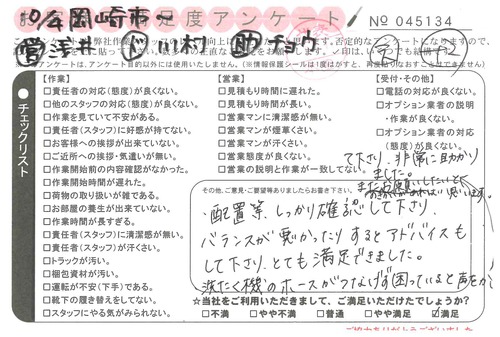 度アンケート
No 045134
10年 岡崎市
営 浅井 ド 川村 助 チョウ
アンケートは、アンケート目的以外には使用されません。(※情報保護シールは1度はがすと、再度貼りなおすことができません)
チェックリスト
【作業】
□責任者の対応(態度)が良くない。
□他のスタッフの対応(態度)が良くない。
□作業を見ていて不安がある。
□責任者(スタッフ)に好感が持てない。
□お客様への挨拶が出来ていない。
□ご近所への挨拶・気遣いが無い。
□作業開始前の内容確認がなかった。
□作業開始時間が遅れた。
□荷物の取り扱いが雑である。
□お部屋の養生が出来ていない。
□作業時間が長すぎる。
□責任者(スタッフ)に清潔感が無い。
□責任者(スタッフ)が汗くさい。
□トラックが汚い。
□梱包資材が汚い。
□運転が不安(下手)である。
□靴下の履き替えをしてない。
□スタッフにやる気がみられない。
【営業】
□見積もり時間に遅れた。
□見積もり時間が長い。
□営業マンに清潔感が無い。
□営業マンが煙草くさい。
□営業マンが汗くさい。
□営業態度が良くない。
□営業の説明と作業が一致してない。
【受付・その他】
□電話の対応が良くない。
□オプション業者の説明
・作業が良くない。
□オプション業者の対応
(態度)が良くない。
その他、ご意見・ご要望等ありましたらお書き下さい。
・配置等、しっかり確認して下さり、
バランスが悪かったりするとアドバイスも
して下さり、とても満足できました。
洗たく機のホースがつなげず困っていると声をか
て下さり、非常に助かり
ました。
またお願いしたいと
思います。
☆当社をご利用いただきまして、ご満足いただけたでしょうか?
□不満 □やや不満 □普通 □やや満足 ☑満足
ご協力ありがとうございました